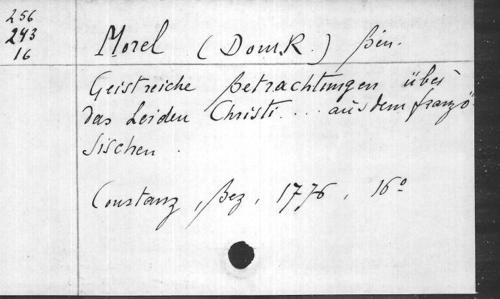 256
243
16
Morel (Dom R.) Bén.
Geistreiche Betrachtungen über
das Leiden Christi.... aus dem franzö
sischen.
Constanz, Bez, 1776, 16°